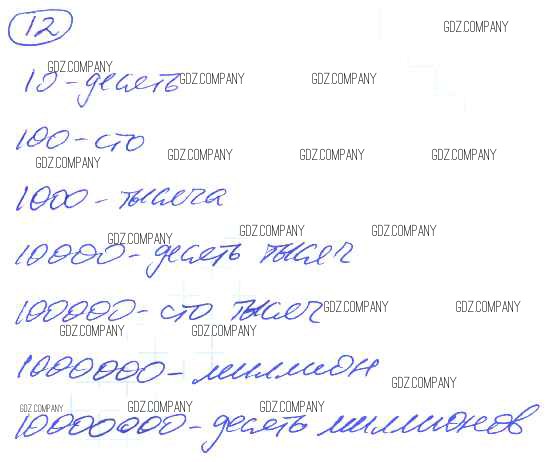 12
GDZ.COMPANY
GDZ.COMPANY GDZ.COMPANY GDZ.COMPANY
10 - десять
100 - сто
GDZ.COMPANY GDZ.COMPANY GDZ.COMPANY GDZ.COMPANY
1000 - тысяча
GDZ.COMPANY GDZ.COMPANY GDZ.COMPANY
10000 - десять тысяч
100000 - сто тысяч
GDZ.COMPANY GDZ.COMPANY
GDZ.COMPANY GDZ.COMPANY
1000000 - миллион
GDZ.COMPANY
GDZ.COMPANY GDZ.COMPANY GDZ.COMPANY
10000000 - десять миллионов